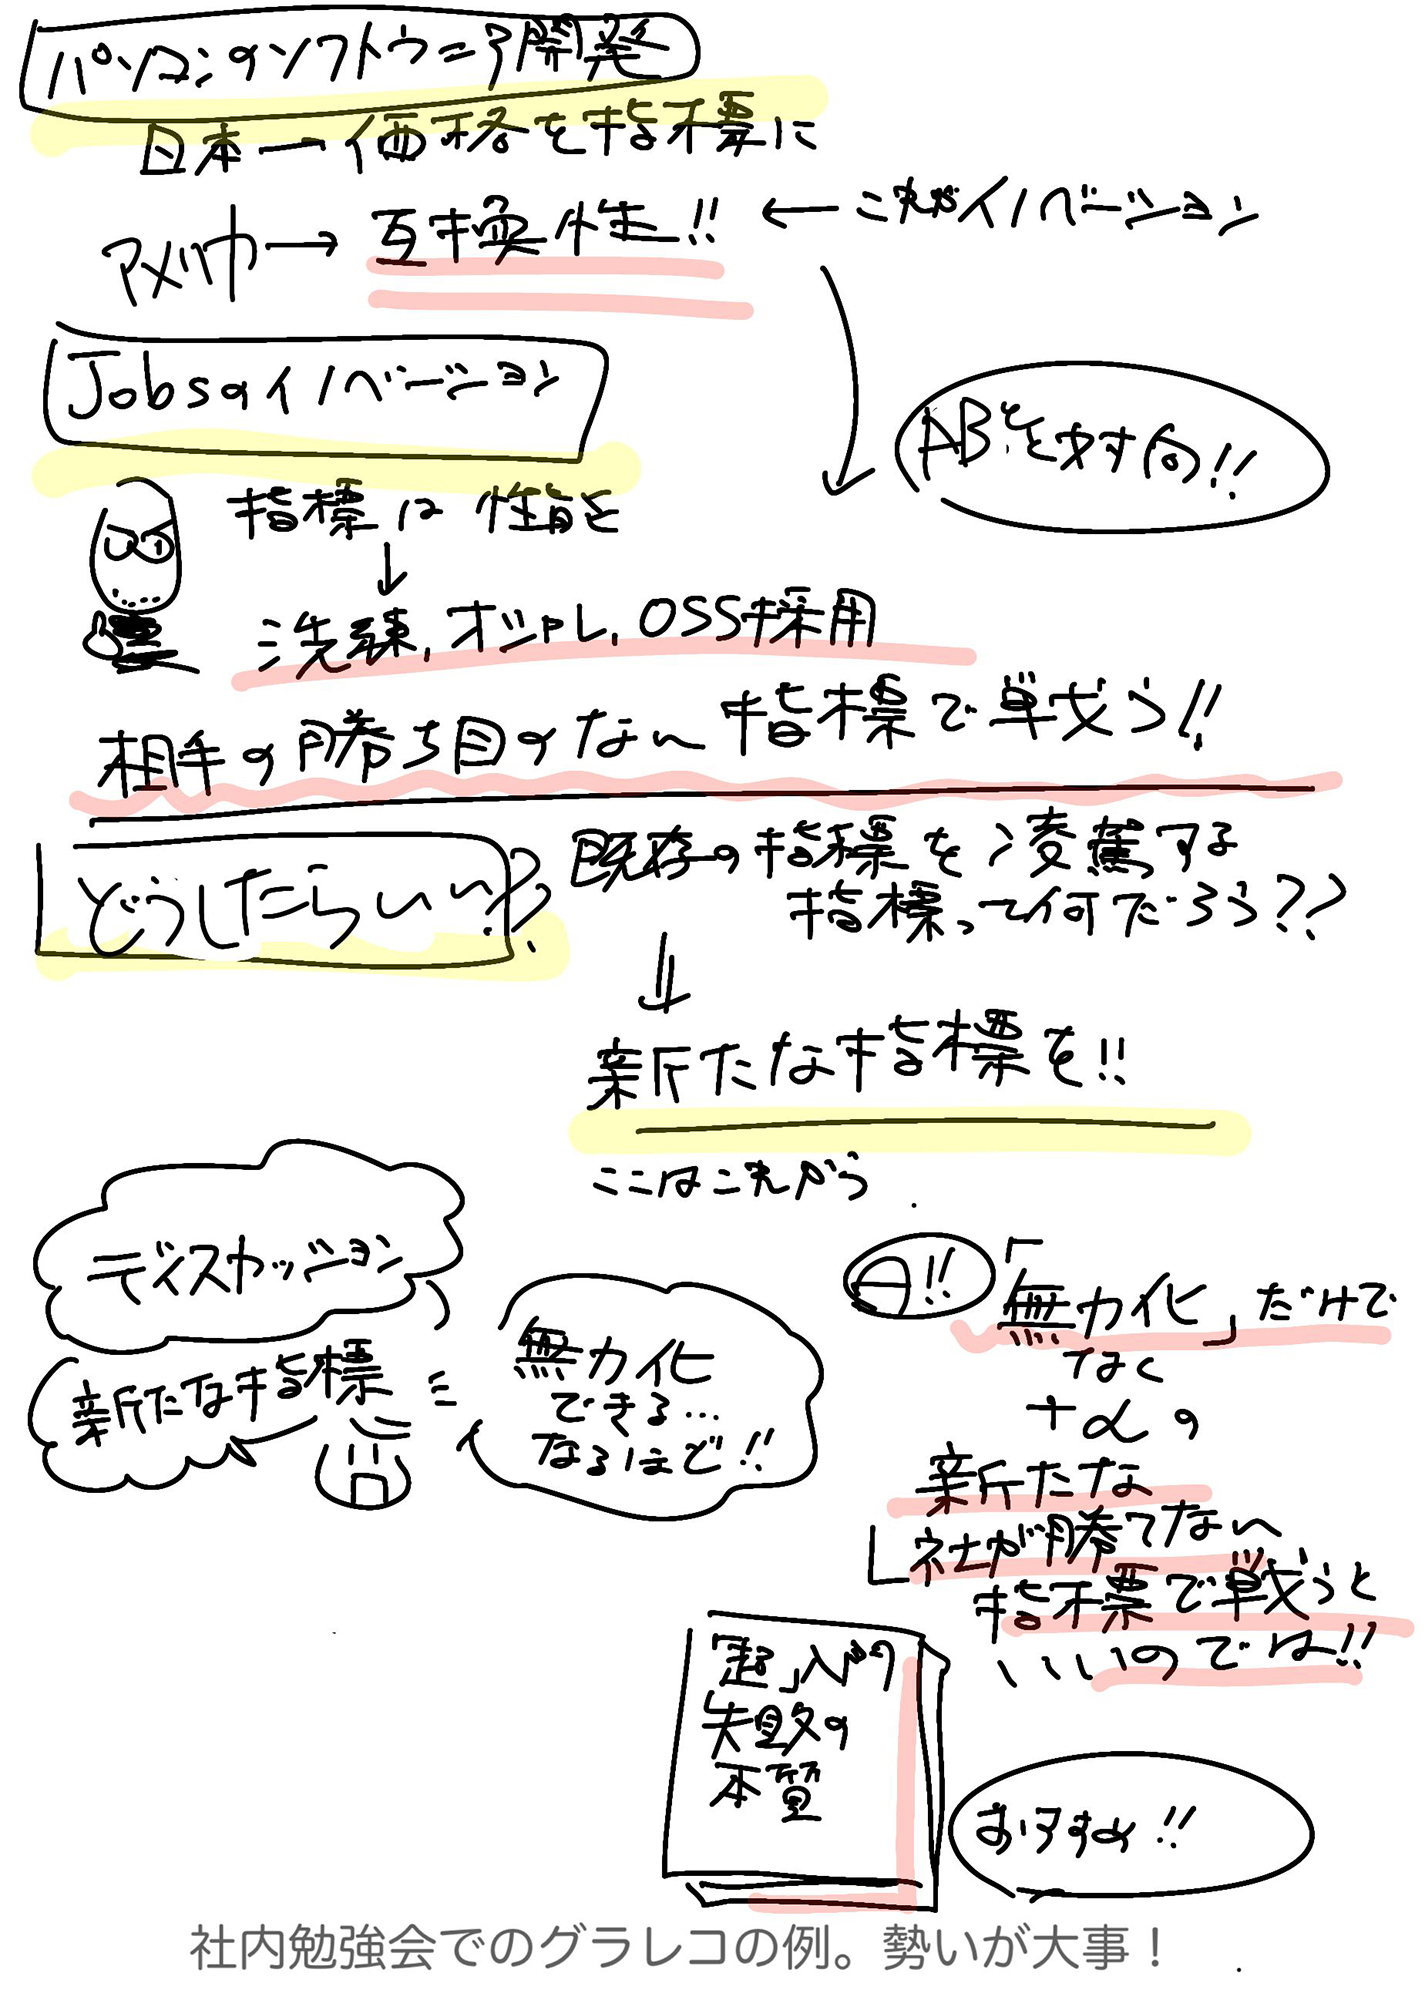 パソコンのソフトウェア開発
日本→価格を指標に
アメリカ→互換性!!
←これがイノベーション
Jobsのイノベーション
ABを対向!!
指標は性能を
↓
洗練,オシャレ,OSS採用
相手の勝ち目のない指標で戦う!!
どうしたらいい??
既存の指標を凌駕する
指標って何だろう??
↓
新たな指標を!!
ここはこれから
ディスカッション
新たな指標
無力化
できる…
なるほど!!
A!!
「無力化」だけで
なく
+αの
新たな
社が勝てない
指標で戦うと
いいのでは!!
「超」入門
失敗の
本質
おすすめ!!
社内勉強会でのグラレコの例。勢いが大事！